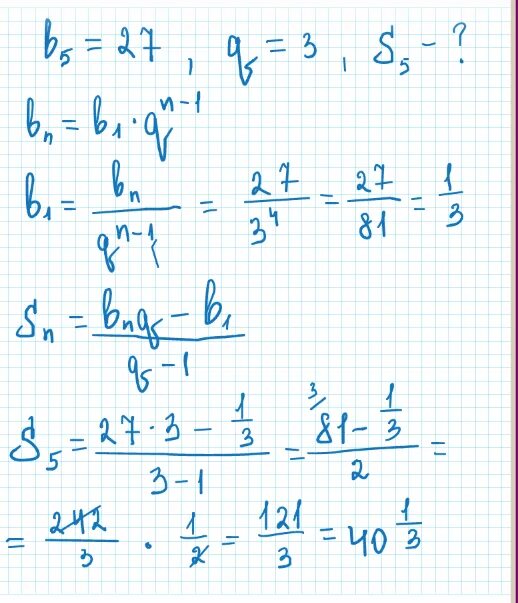 b₅ = 27, q = 3, S₅ - ?
bₙ = b₁ · qⁿ⁻¹
b₁ = bₙ / qⁿ⁻¹ = 27 / 3⁴ = 27 / 81 = 1/3
Sₙ = (bₙq - b₁) / (q - 1)
S₅ = (27 · 3 - 1/3) / (3 - 1) = (³⁄81 - 1/3) / 2 =
= 242/3 · 1/2 = 121/3 = 40 1/3